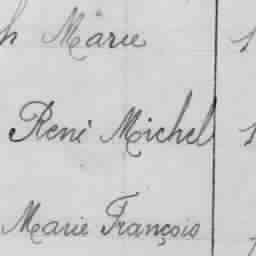 h Marie 1
René Michel 1
Marie François